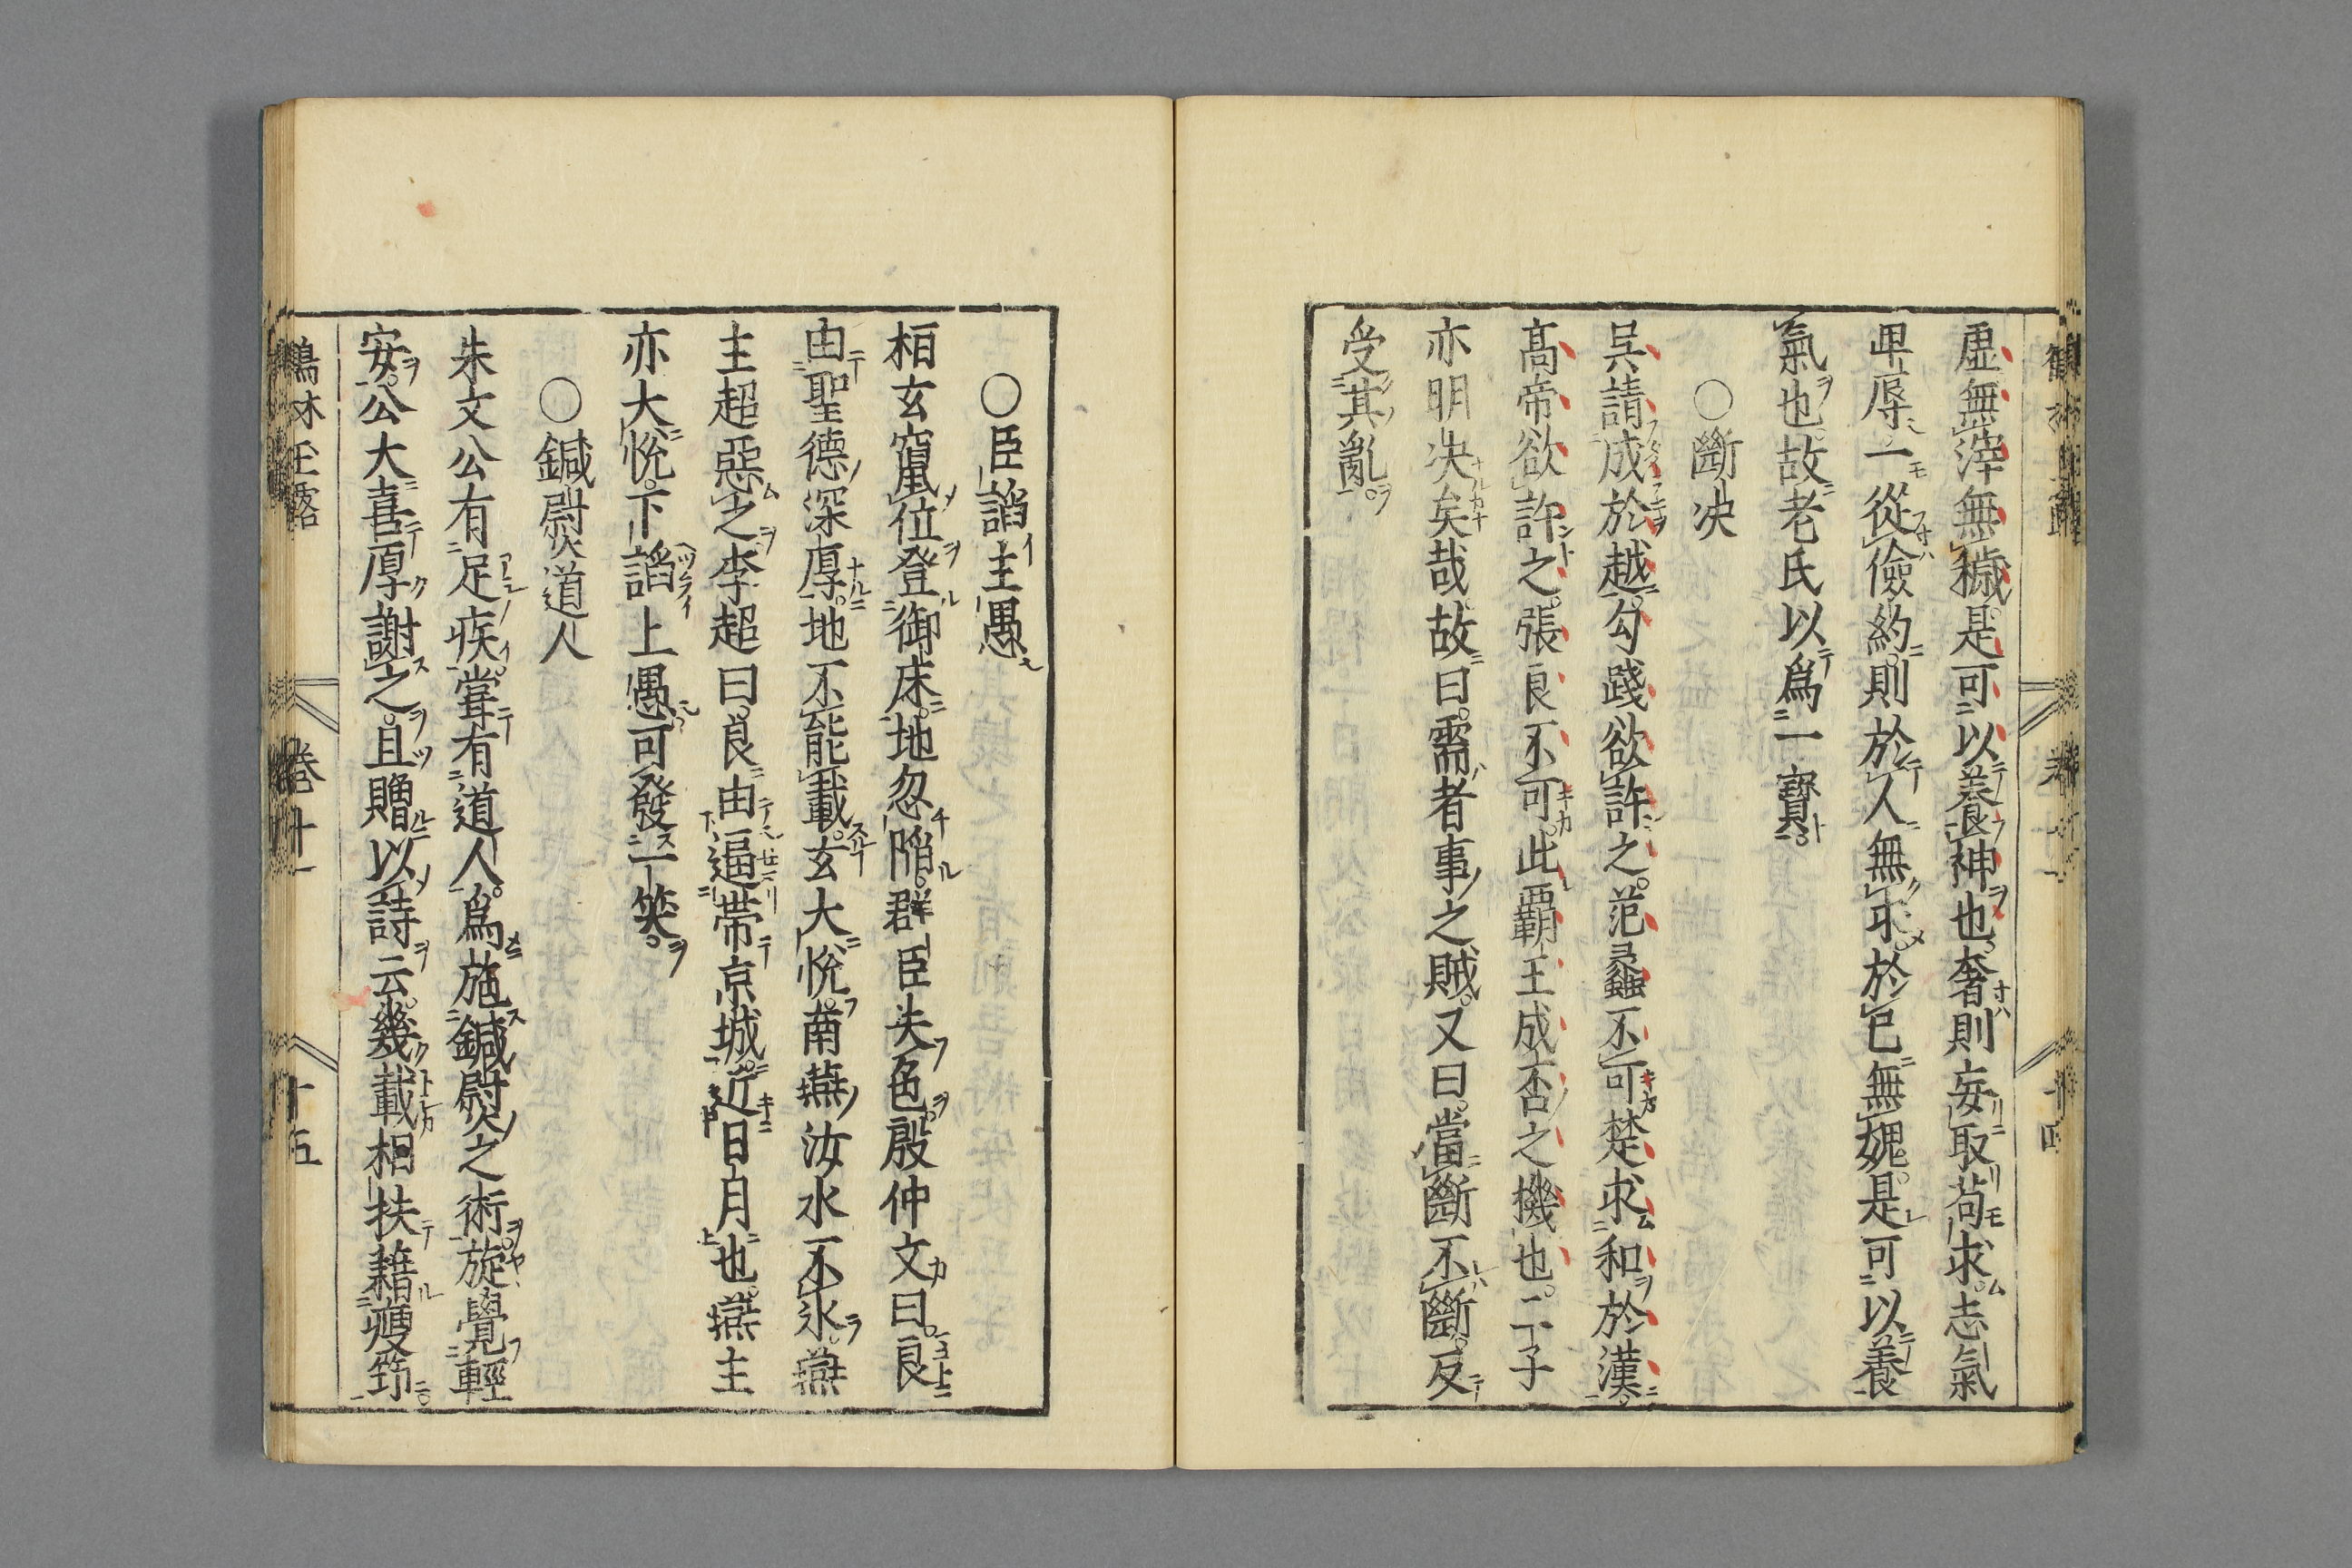 虛無滓無穢是可以養神也。奢則妄取苟求。志氣
卑辱。一從儉約。則於人無求。於已無媿。是可以養
氣也。故老氏以爲一寶。
○斷决
吳請成於越。勾踐欲許之。范蠡不可。楚求和於漢。
高帝欲許之。張良不可。此霸王成否之機也。二子
亦明决矣哉。故曰。需者事之賊。又曰。當斷不斷。反
受其亂。
○臣謟主愚
桓玄簒位登御床。地忽陷。群臣失色。殷仲文曰。良
由聖德深厚。地不能載。玄大悅。南燕汝水不氷。燕
主超惡之。李超曰。良由逼帶京城。近日月也。燕主
亦大悅。下謟上愚。可發一笑。
○鍼熨道人
朱文公有足疾。甞有道人。爲施鍼熨之術。旋覺輕
安。公大喜厚謝之。且贈以詩云。幾載相扶藉瘦筇。
鶴林玉露 卷十一 十五